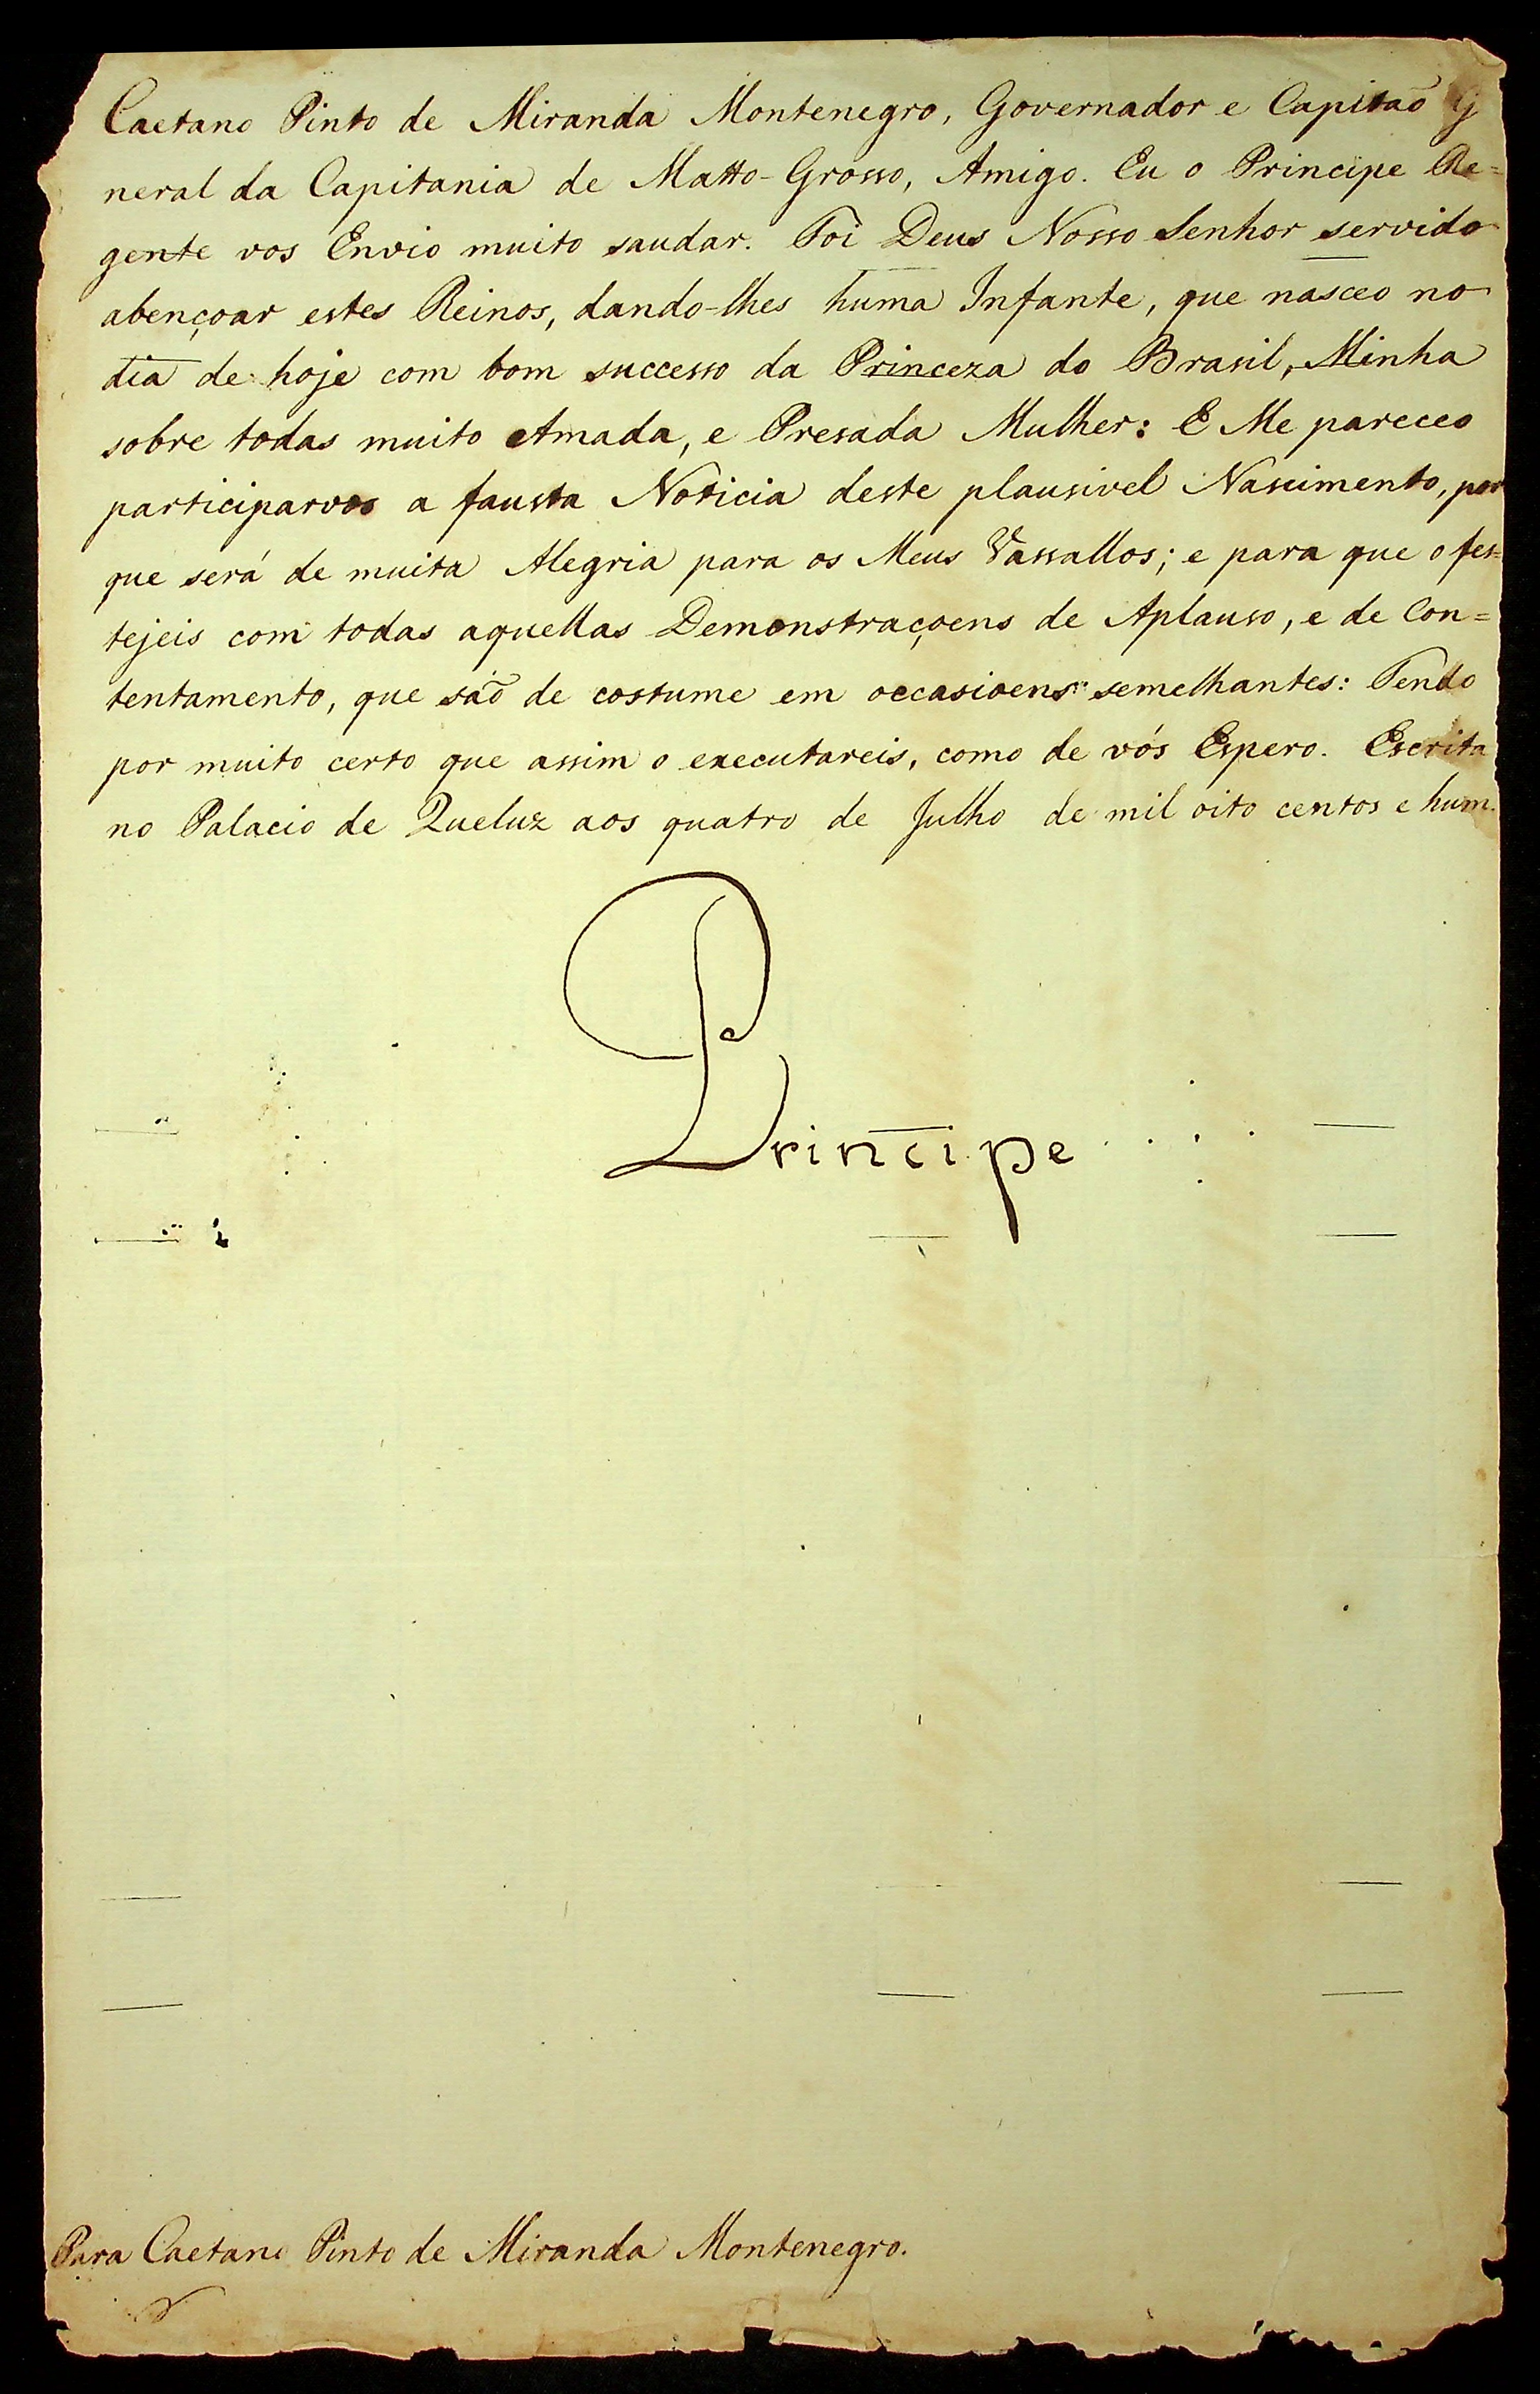 Caetano Pinto de Miranda Montenegro, Governador e Capitaõ G
neral da Capitania de Matto-Grosso, Amigo. Eu o Principe Re=
gente vos Envio muito saudar. Foi Deus Nosso Senhor servido
abençoar estes Reinos, dando-lhes huma Infante, que nasceo no
dia de hoje com bom successo da Princeza do Brasil, Minha
sobre todas muito Amada, e Presada Mulher: E Me pareceo
participarvos a fausta Noticia deste plausivel Nascimento, por
que será de muita Alegria para os Meus Vassallos; e para que o fes=
tejeis com todas aquellas Demonstraçoens de Aplauso, e de Con=
tentamento, que saõ de costume em occasioens semelhantes: Tendo
por muito certo que assim o executareis, como de vós Espero. Escrita
no Palacio de Queluz aos quatro de Julho de mil oito centos e hum.
Principe
Para Caetano Pinto de Miranda Montenegro.